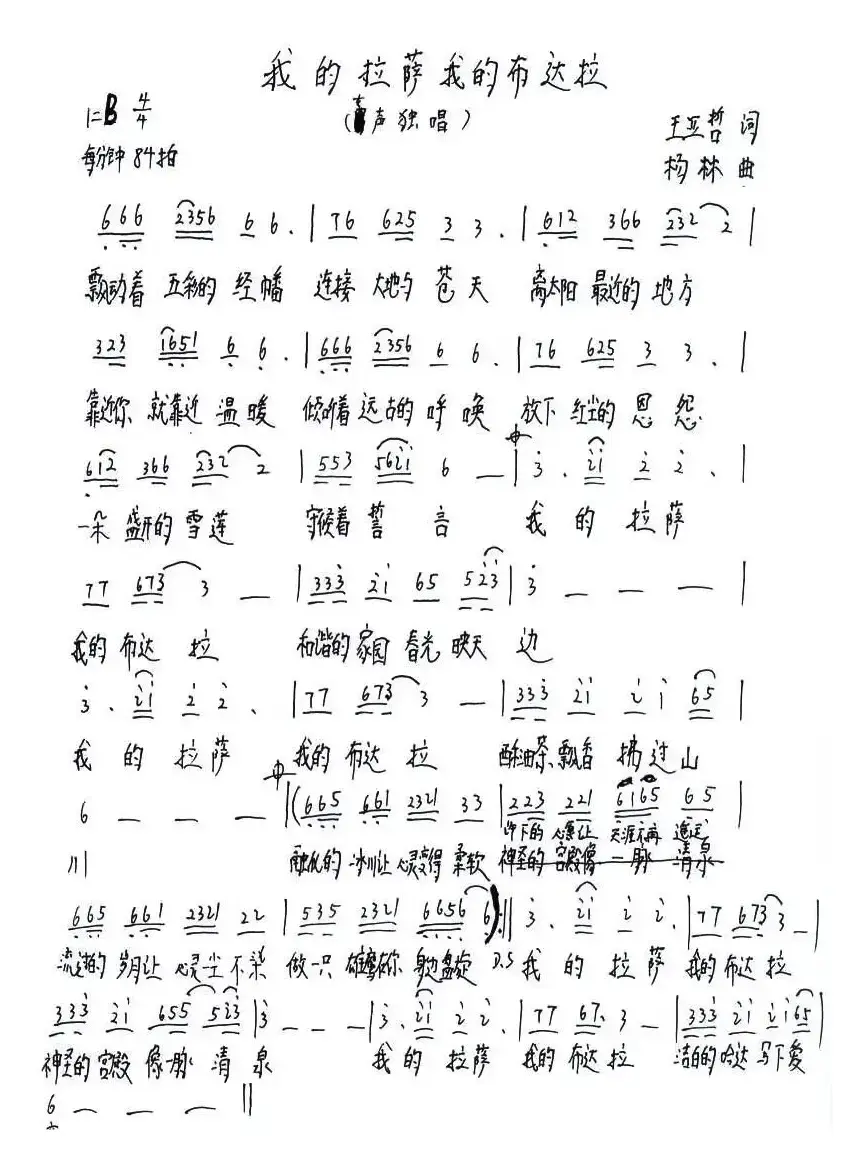 我的拉萨我的布达拉
1=B 4/4
(声独唱)
王亚哲 词
每分钟84拍
杨林 曲
666 2356 6 6. | 76 625 3 3. | 612 366 232 2 |
飘动着 五彩的 经幡 连接 大地与 苍天 离太阳 最近的 地方
323 1651 6 6. | 666 2356 6 6. | 76 625 3 3. |
靠近你 就靠近 温暖 倾听着 远古的 呼唤 放下 红尘的 恩怨
612 366 232 2 | 553 5621 6 — | 3. 21 2 2. |
一朵 盛开的 雪莲 守候着 誓言 我的拉萨
77 673 3 — | 333 21 65 523 | 3 — — — |
我的 布达拉 和谐的 家园 春光 映天边
3. 21 2 2. | 77 673 3 — | 333 21 2 1 65 |
我的拉萨 我的 布达拉 酥油茶 飘香 拂过山
6 — — — ||( 665 661 2321 33 | 223 221 6165 65 |
卸下的 心愿让 天涯不再 遥远
川 融化的 冰川让 心灵变得 柔软 神圣的 宫殿像 一脉 清泉
665 661 2321 22 | 535 2321 6656 6 ):|| 3. 21 2 2. | 77 673 3 — |
流逝的 岁月让 心灵 不染 做一只 雄鹰在你 身边盘旋 D.S 我的拉萨 我的布达拉
333 21 655 523 | 3 — — — | 3. 21 2 2. | 77 67. 3 — | 333 21 21 65 |
神圣的 宫殿 像一脉 清泉 我的拉萨 我的 布达拉 洁白的 哈达 写下爱
6 — — — ||